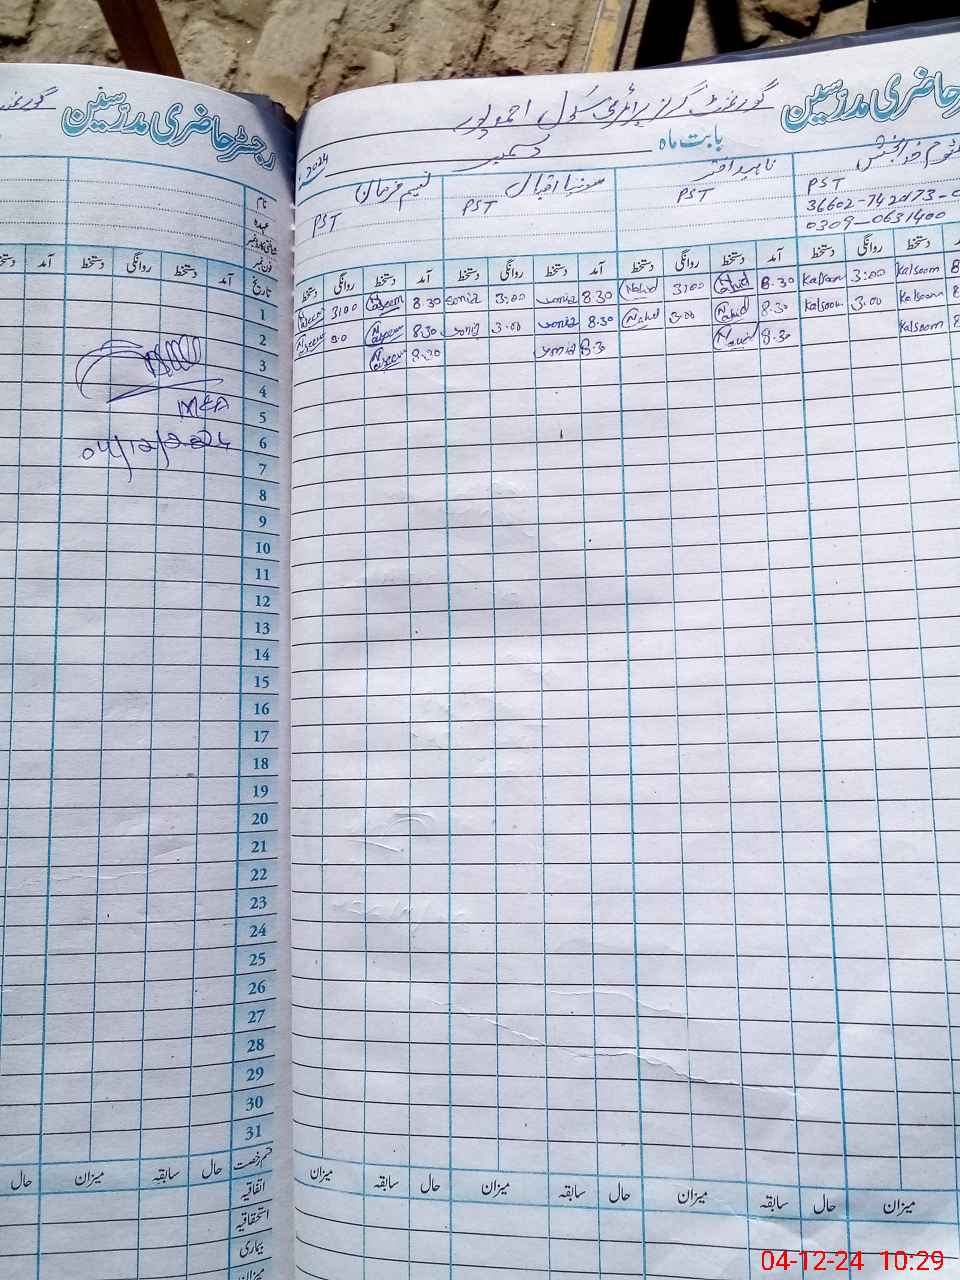 رجسٹر حاضری مدرسین
گورنمنٹ گرلز پرائمری سکول احمد پور
بابت ماہ دسمبر 2024
نسیم فرحان
PST
سونیا اقبال
PST
ناہید اختر
PST
PST
0309-0631400
نام
عہدہ
فون نمبر
تاریخ
آمد دستخط روانگی دستخط آمد دستخط
آمد دستخط روانگی دستخط آمد دستخط روانگی دستخط آمد دستخط روانگی دستخط دستخط روانگی دستخط
1
Kalsoom 3:00 Kalsoom 8.30 Nahid 3:00 Nahid 8.30 Sonia 3:00 Sonia 8.30 Naseem 3:00 Naseem
2
Kalsoom Kalsoom 3.00 8.30 Nahid 3.00 Nahid 8.30 Sonia 3.00 Sonia 8.30 Naseem Naseem
3
Kalsoom 8.30 Nahid 8.30 Sonia 8.30 Naseem
4
MEA
5
04/12/2024
6
7
8
9
10
11
12
13
14
15
16
17
18
19
20
21
22
23
24
25
26
27
28
29
30
31
قسم رخصت حال سابقہ میزان حال
میزان حال سابقہ میزان حال سابقہ میزان حال سابقہ میزان
اتفاقیہ
استحقاقیہ
بیماری
میزان
04-12-24 10:29